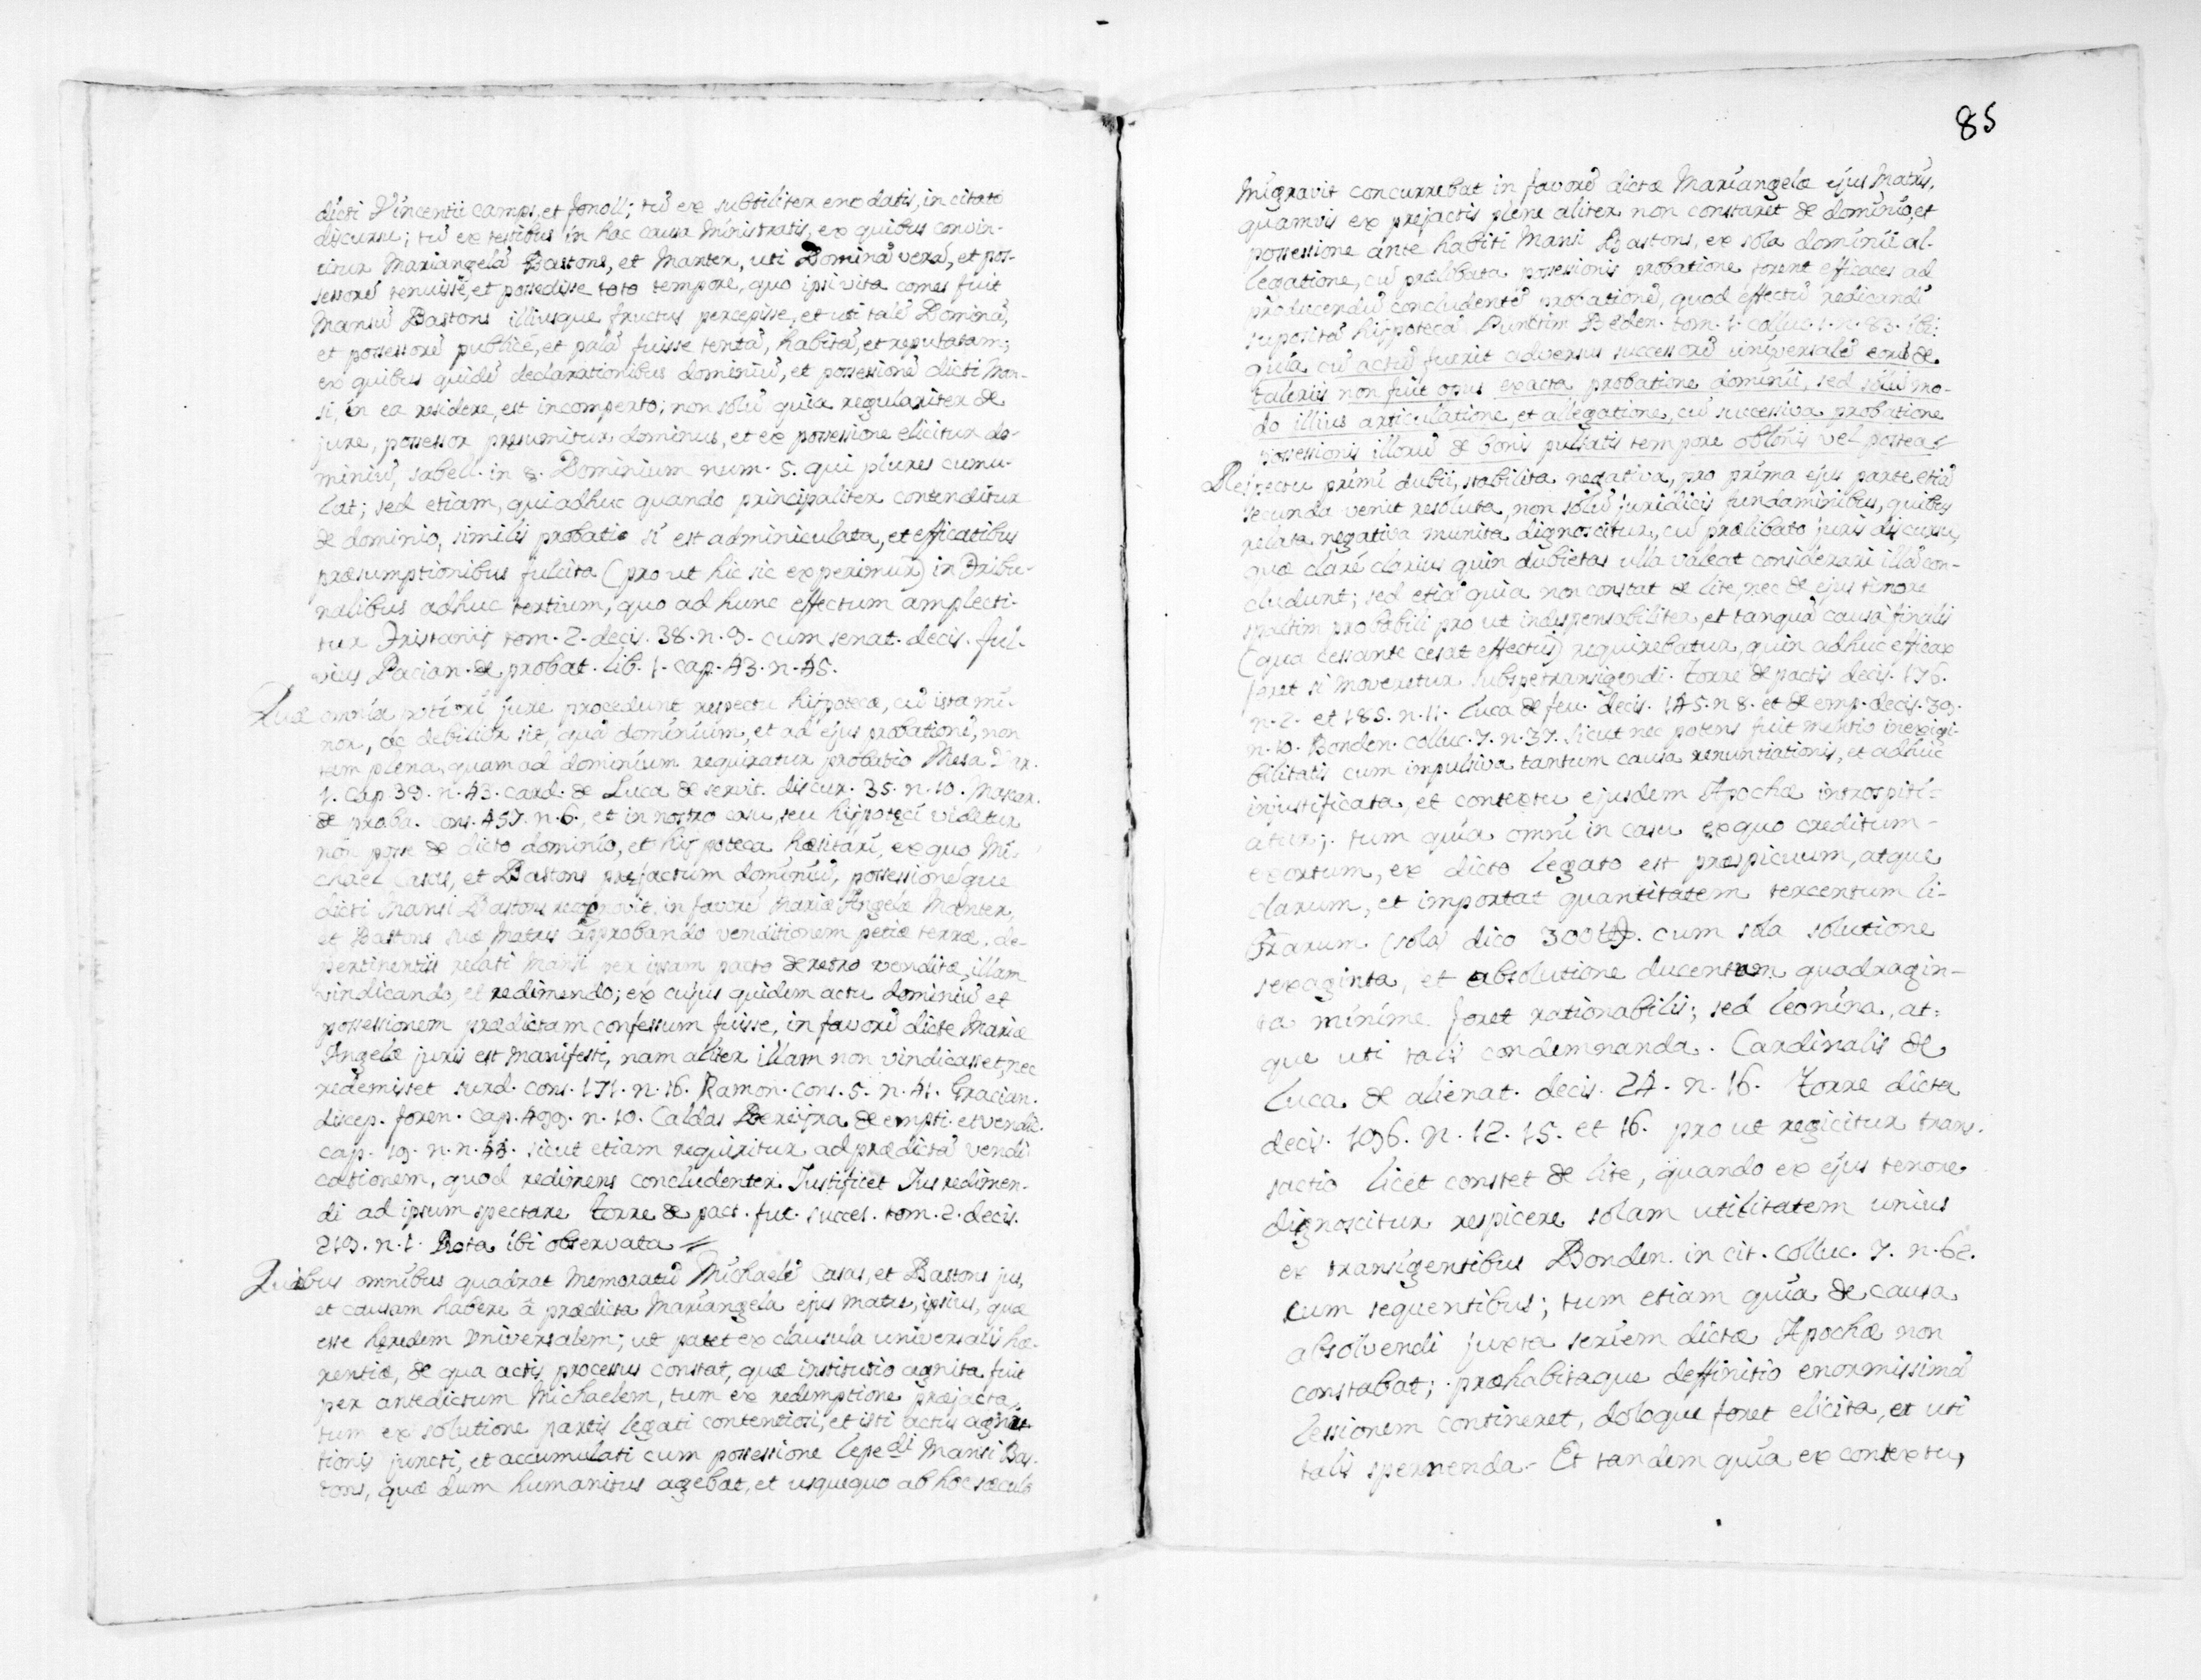 dicti Vincentii Camps, et fonoll; tũ ex subtiliter enodatis, in citato
discursu; tũ ex testibus in hac causa ministratis, ex quibus convin-
citur Mariangelã Bastons, et Manter, uti Dominã verã, et pos-
sessorẽ tenuisse, et possedisse toto tempore, quo ipsi vita comes fuit
Mansũ Bastons illiusque fructus percepisse, et uti talẽ Dominã,
et possessorẽ publicè, et palã fuisse tentã, habitã, et reputatam;
ex quibus quidẽ declarationibus dominiũ, et possessionẽ dicti Man-
si, in ea residere, est incomperto; non solũ quia regulariter de
jure, possessor presumitur dominus, et ex possessione elicitur do-
miniũ, sabell. in §. Dominium num. 5. qui plures cumu-
lat; sed etiam, qui adhuc quando principaliter contenditur
de dominio, similis probatio si est adminiculata, et efficatibus
præsumptionibus fulcita (pro ut hic sic experimur) in Tribu-
nalibus adhuc tertium, quo ad hunc effectum amplecti-
tur Tristanij tom. 2. decis. 38. n. 9. cum senat. decis. ful-
vius Pacian. de probat. lib. 1. cap. 43. n. 45.
Quæ omnia potiori jure procedunt respectu hijpotecæ, cũ ista mi-
nor, ac debilior sit, quã dominium, et ad ejus probationẽ, non
tam plena, quam ad dominium requiratur probatio Mesa Var.
1. cap. 39. n. 43. card. de Luca de servit. discur. 35. n. 10. Mascar.
de proba. cons. 457. n. 6., et in nostro casu, seu hijpoteci videtur
non posse de dicto dominio, et hijpoteca hæsitari, ex quo Mi-
chael Casas, et Bastons prejactum dominiũ, possessionẽque
dicti Mansi Bastons recognovit, in favorẽ Mariæ Angelæ Manter,
et Bastons suæ Matris approbando venditionem petiæ terræ, de
pertinentiis relati Mansi per ipsam pacto de retro venditæ, illam
vindicando, et redimendo; ex cujus quidem actu dominiũ et
possessionem prædictam confessum fuisse, in favorẽ dicte Mariæ
Angelæ juris est manifesti, nam aliter illam non vindicasset, nec
redemisset surd. cons. 171. n. 16. Ramon. cons. 5. n. 41. Gracian.
discep. foren. cap. 499. n. 10. Caldas Pereijra de empti. et vendit.
cap. 19. n. n. 43. sicut etiam requiritur ad prædictã vendi-
cationem, quod redimens concludenter Justificet Jus redimen-
di ad ipsum spectare Torre de pact. fut. succes. tom. 2. decis.
219. n. 1. Rota ibi observata //
Quibus omnibus quadrat memoratũ Michaelẽ Casas, et Bastons jus,
et causam habere à prædicta Mariangela ejus matre, ipsius, quæ
esse heredem Universalem; ut patet ex clausula universalis hæ-
rentiæ, de qua actis processus constat, quæ institutio agnita fuit
per antedictum Michaelem, tum ex redemptione præjacta,
tum ex solutione partis legati contentiosi, et isti actus agni-
tionis juncti, et accumulati cum possessione sepedi Mansi Bas-
tons, quæ dum humanitus agebat, et usquequo ab hoc sæculo
85
migravit concurrebat in favorẽ dictæ Mariangelæ ejus Matris,
quamvis ex prejactis plene aliter non constaret de dominio, et
possessione ante habiti Mansi Bastons, ex sola dominii al-
legatione, cũ prælibata possessionis probatione forent efficaces ad
producendũ concludentẽ probationẽ, quod effectũ redicandi
suposita hijpoteca. Punctim Beden. tom. 1. colluc. 1. n. 83. ibi:
quia cũ actũ fuerit adversus successorẽ universalẽ eorũde
taleriis non fuit opus exacta probatione dominii, sed solũ mo-
do illius articulatione, et allegatione, cũ successiva probatione
possessionis illorũ de bonis pulsatis tempore obtonis vel postea //
Respectu primi dubii, stabilita negativa, pro prima ejus parte etiã
secunda venit resoluta, non solũ juridicis fundaminibus, quibus
relata negativa munita dignoscitur, cũ prælibato juris discursu,
quæ claré clarius quin dubietas ulla valeat considerari illã con-
cludunt; sed etiã quia non constat de lite, nec de ejus timore
spaltim probabili pro ut indispensabiliter, et tanquã causa finalis
(qua cessante cesat effectus) requirebatur, quin adhuc efficax
foret si moveretur sub spe transigendi. Torre de pactis decis. 176.
n. 2. et 185. n. 11. Luca de feu. decis. 145. n 8. et de emp. decis. 39.
n. 10. Bonden. colluc. 7. n. 37. sicut nec potens fuit mentio inexigi-
bilitatis cum impulsiva tantum causa renuntiationis, et adhuc
injustificata, et contextu ejusdem Apochæ introspiti-
atur; tum quia omni in casu ex quo creditum
exortum, ex dicto legato est prespicuum, atque
clarum, et importat quantitatem tercentum li-
brarum (sola dico 300 ₶). cum sola solutione
sexaginta, et absolutione ducentum quadragin-
ta minime foret rationabilis; sed leonina, at=
que uti talis condemnanda. Cardinalis de
Luca de alienat. decis. 24. n. 16. Torre dicta
decis. 196. n. 12. 15. et 16. pro ut regicitur trans-
sactio licèt constet de lite, quando ex ejus tenore
dignoscitur respicere solam utilitatem unius
ex transigentibus Bonden. in cit. colluc. 7. n. 62.
cum sequentibus; tum etiam quia de causa
absolvendi juxta seriem dictæ Apochæ non
constabat; præhabitaque deffinitio enormissimã
lessionem contineret, doloque foret elicita, et uti
talis spernenda. Et tandem quia ex contextu,